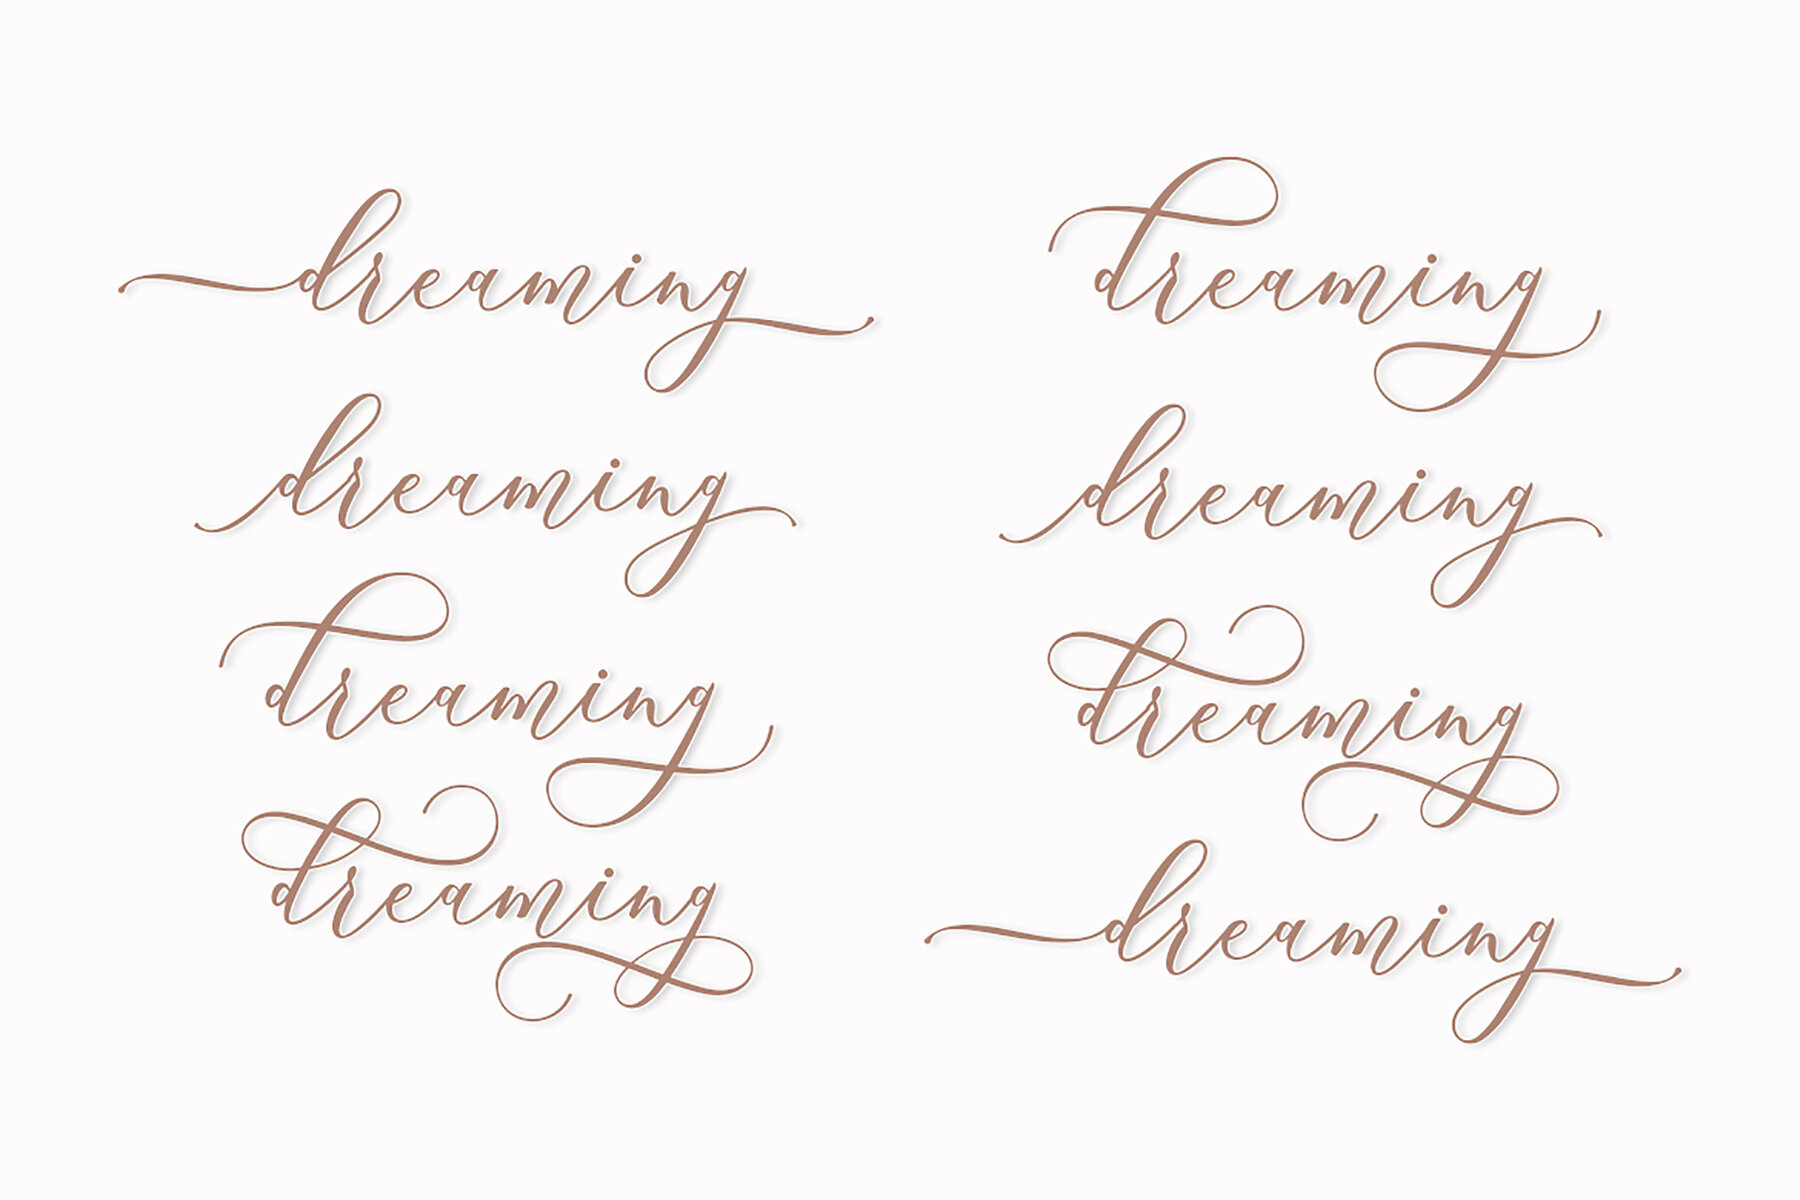 dreaming
dreaming
dreaming
dreaming
dreaming
dreaming
dreaming
dreaming